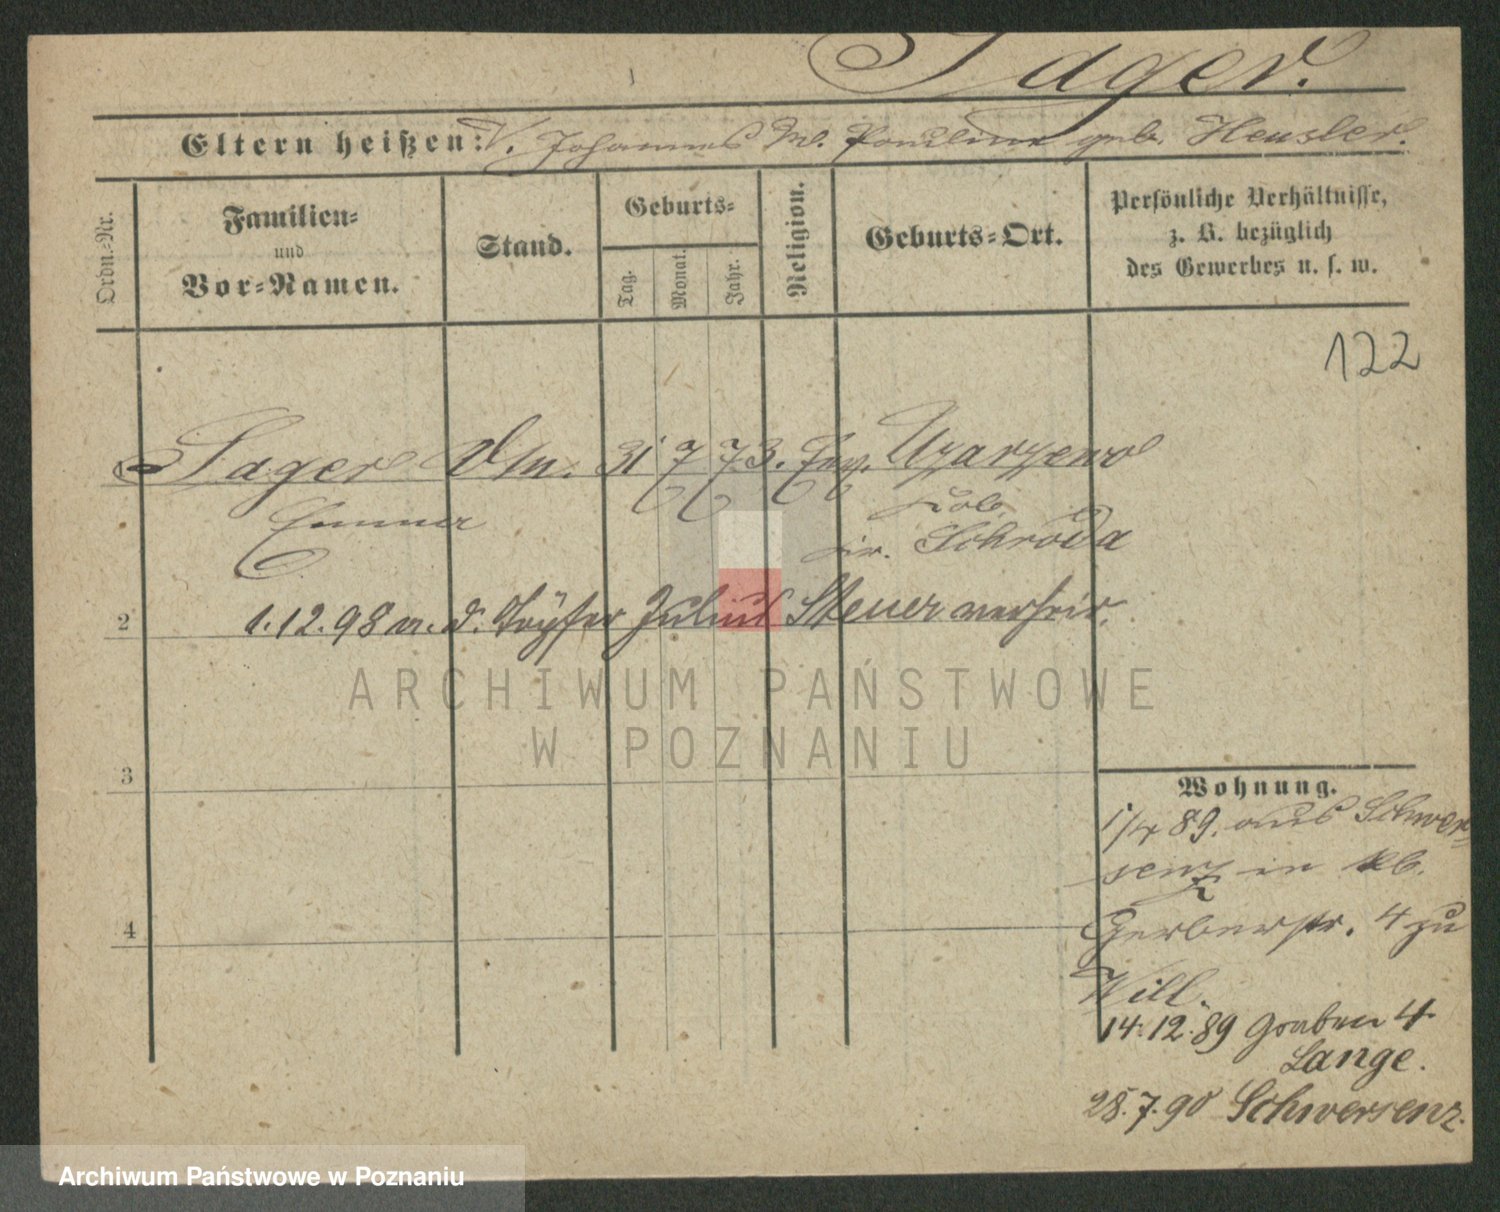 Jager.
Eltern heißen: V. Johannes M. Pauline geb. Heusler.
Ordn.-Nr.
Familien-
und
Vor-Namen.
Stand.
Geburts-
Tag.
Monat.
Jahr.
Religion.
Geburts-Ort.
Persönliche Verhältnisse,
z. B. bezüglich
des Gewerbes u. s. w.
122
Jager Dm. 31 7 73. Ev.
Emma
Kr. Schroda
2 1.12.98 m. d. Töpfer Julius Steuer verheir.
ARCHIWUM PAŃSTWOWE
W POZNANIU
3
Wohnung.
1/4 89. aus Schwer-
senz in
4 Gerberstr. 4 zu
Will.
14.12.89 Graben 4.
Lange.
28.7.90 Schwersenz.
Archiwum Państwowe w Poznaniu